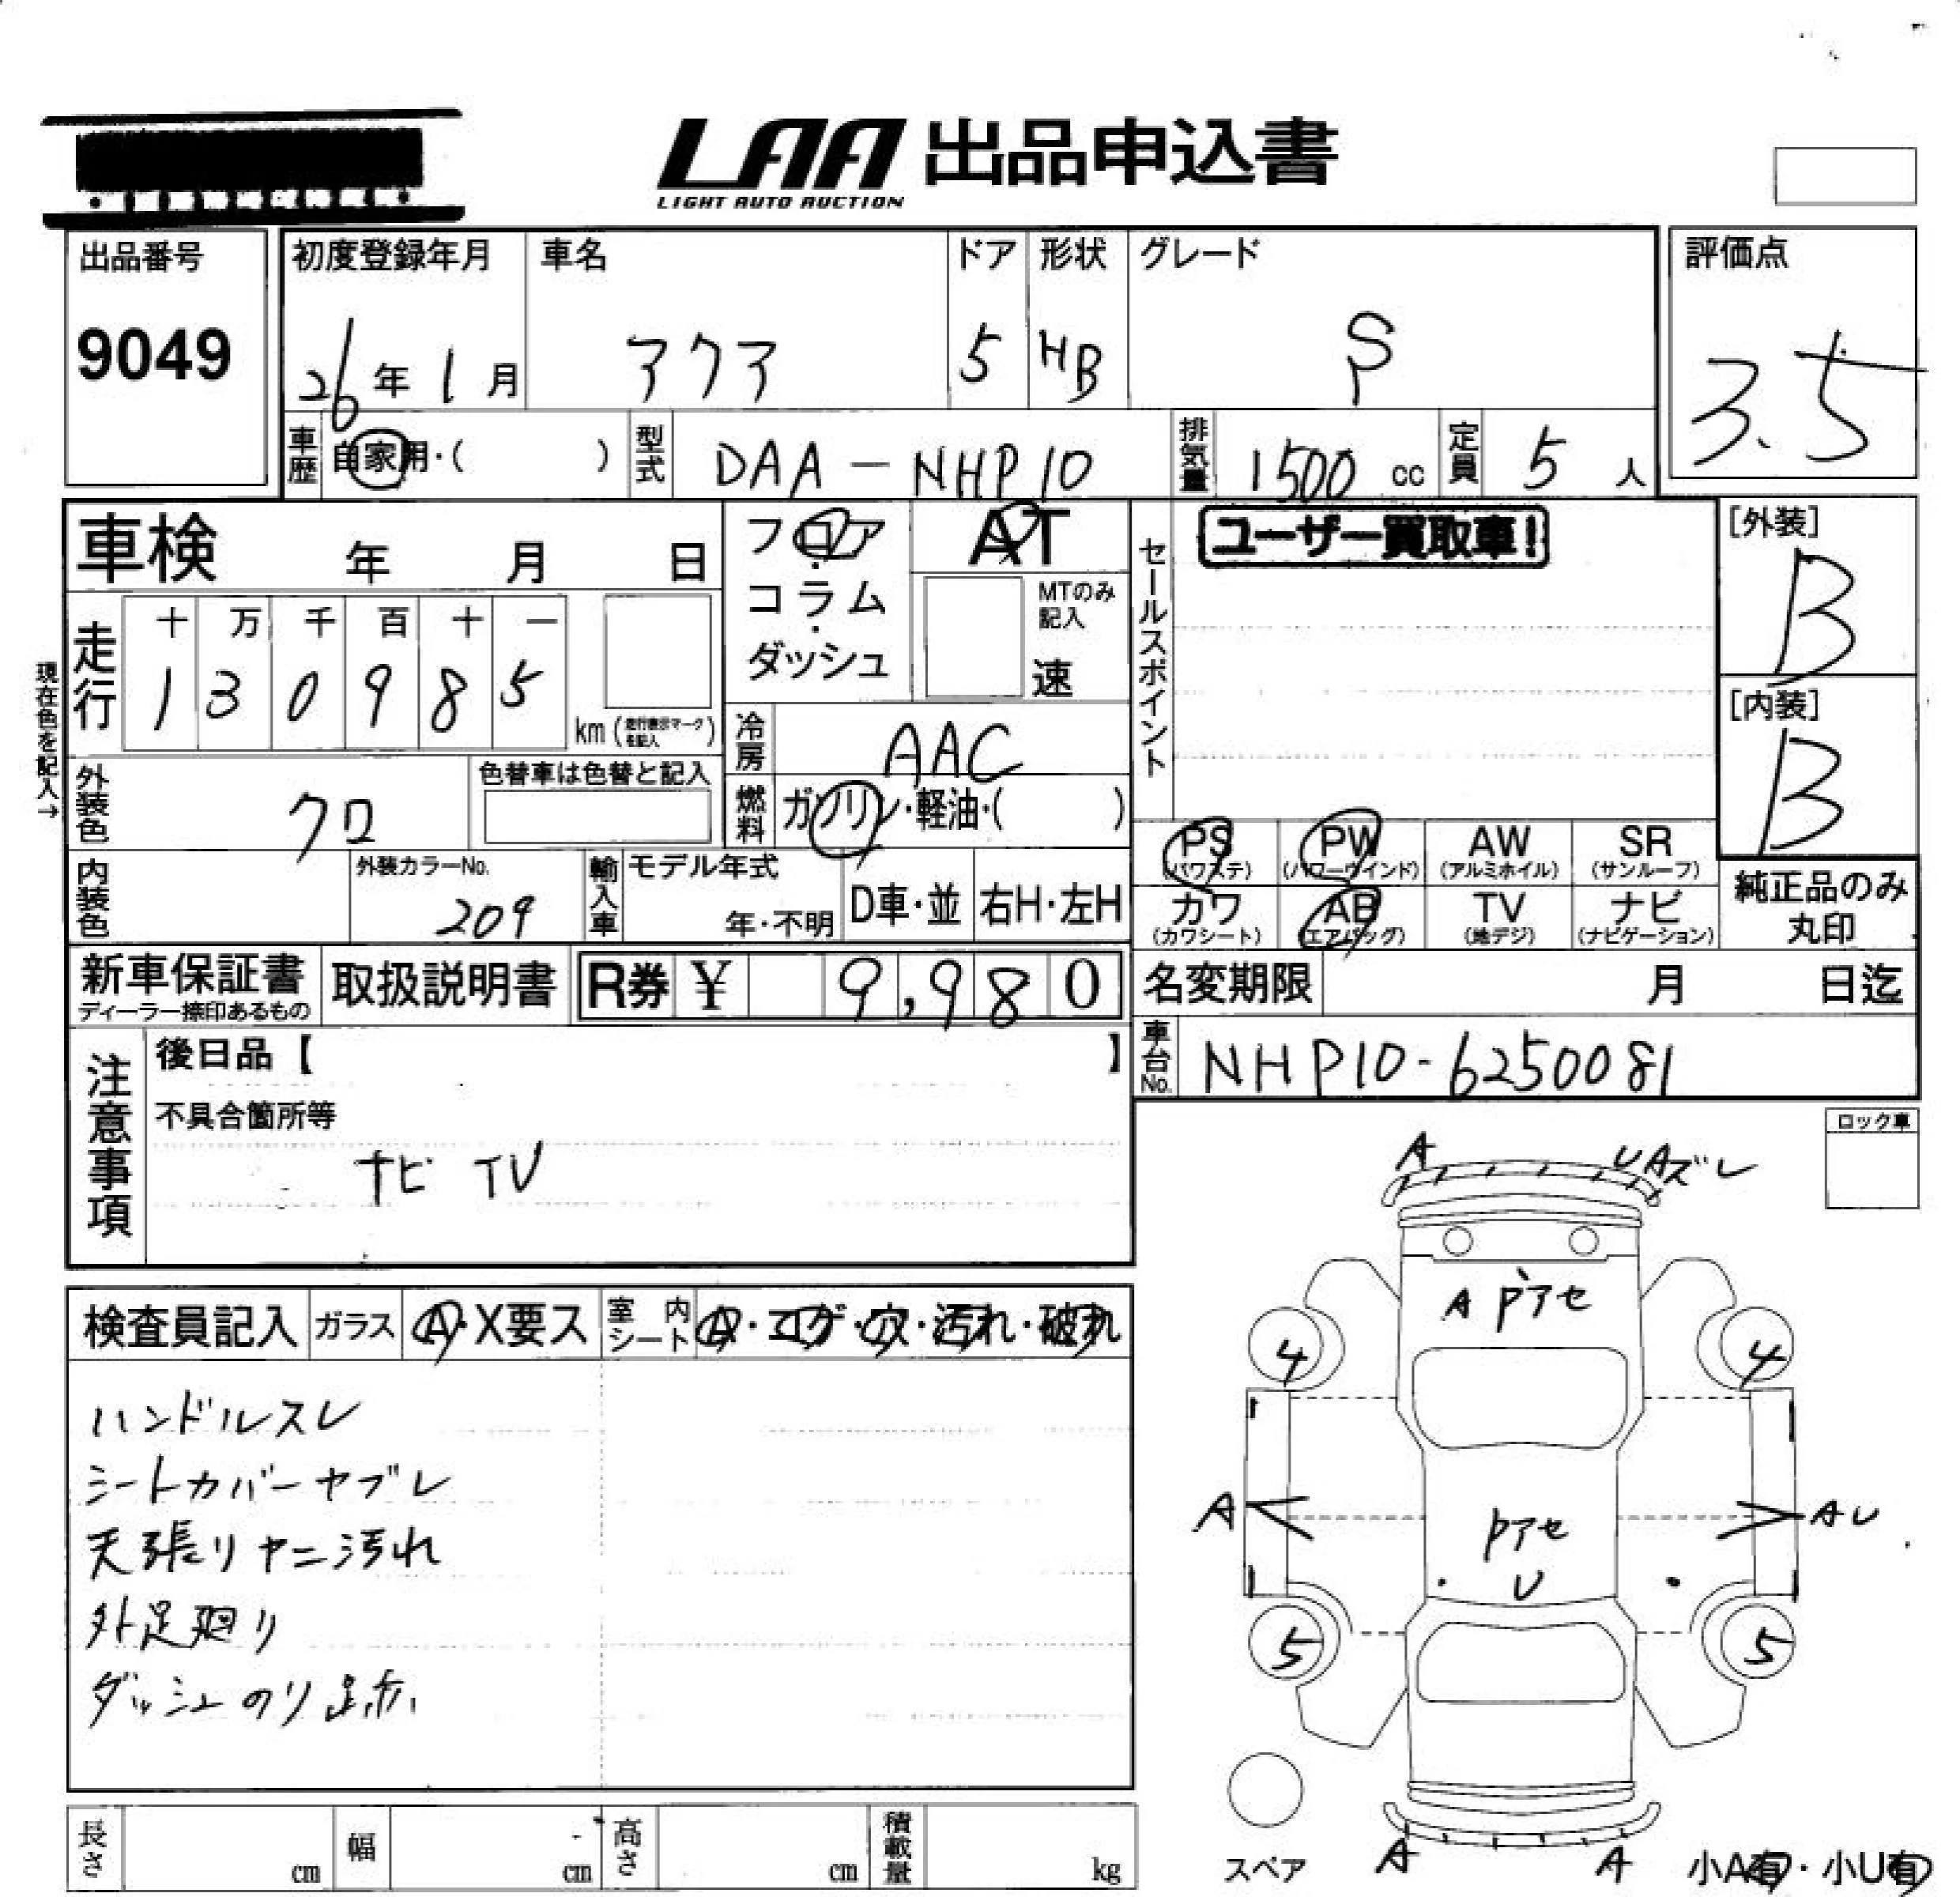 LAA 出品申込書
LIGHT AUTO AUCTION
出品番号
9049
初度登録年月
26年 1月
車名
アクア
ドア
5
形状
HB
グレード
S
評価点
3.5
車歴 自家用・( )
型式 DAA-NHP10
排気量 1500 cc
定員 5 人
車検 年 月 日
フロア・コラム・ダッシュ
AT
MTのみ記入
速
セールスポイント
ユーザー買取車!
[外装]
B
[内装]
B
現在色を記入→
走行
十 万 千 百 十 一
1 3 0 9 8 5
km (走行表示マークを記入)
冷房 AAC
燃料 ガソリン・軽油・( )
外装色 クロ
色替車は色替と記入
内装色
外装カラーNo.
209
輸入車
モデル年式
年・不明
D車・並
右H・左H
PS (パワステ)
PW (パワーウインド)
AW (アルミホイル)
SR (サンルーフ)
カワ (カワシート)
AB (エアバッグ)
TV (地デジ)
ナビ (ナビゲーション)
純正品のみ丸印
新車保証書
ディーラー捺印あるもの
取扱説明書
R券 ¥ 9,980
名変期限 月 日迄
車台No. NHP10-6250081
注意事項
後日品【 】
不具合箇所等
ナビ TV
ロック車
検査員記入
ガラス A・X要ス
室内シート A・コゲ・穴・汚れ・破れ
ハンドルスレ
シートカバーヤブレ
天張りヤニ汚れ
外足廻り
ダッシュのり跡
A
UAズレ
A Pアセ
4
4
A
AU
Pアセ
U
5
5
A
A
スペア
小A有・小U有
長さ cm
幅 cm
高さ cm
積載量 kg